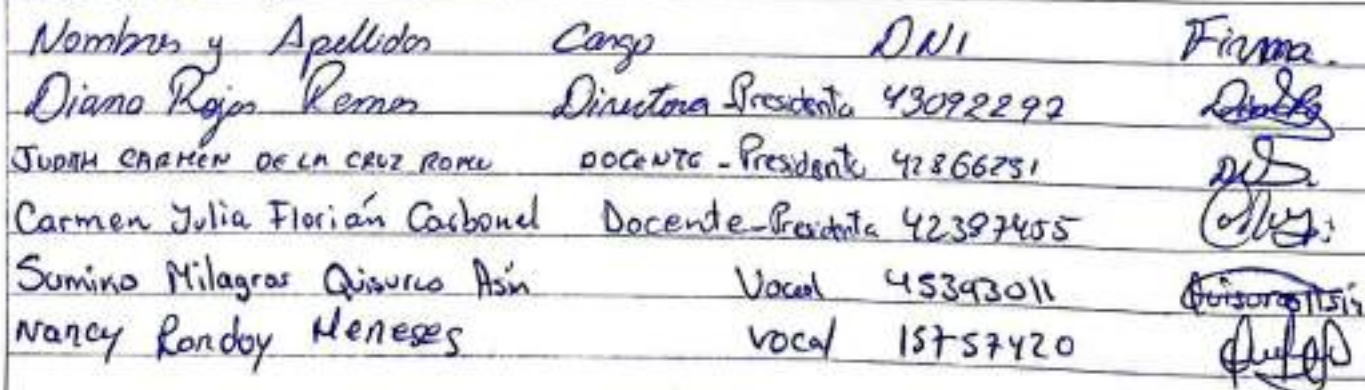 Nombres y Apellidos Cargo DNI Firma.
Diana Rojas Ramos Directora Presidenta 43092292
JUDITH CARMEN DE LA CRUZ DOCENTE - Presidenta 42866251
Carmen Julia Florián Carbonel Docente - Presidenta 42397455
Sumino Milagros Quisurco Asin Vocal 45393011 Quisurco Asin
Nancy Rondoy Meneses vocal 15757420